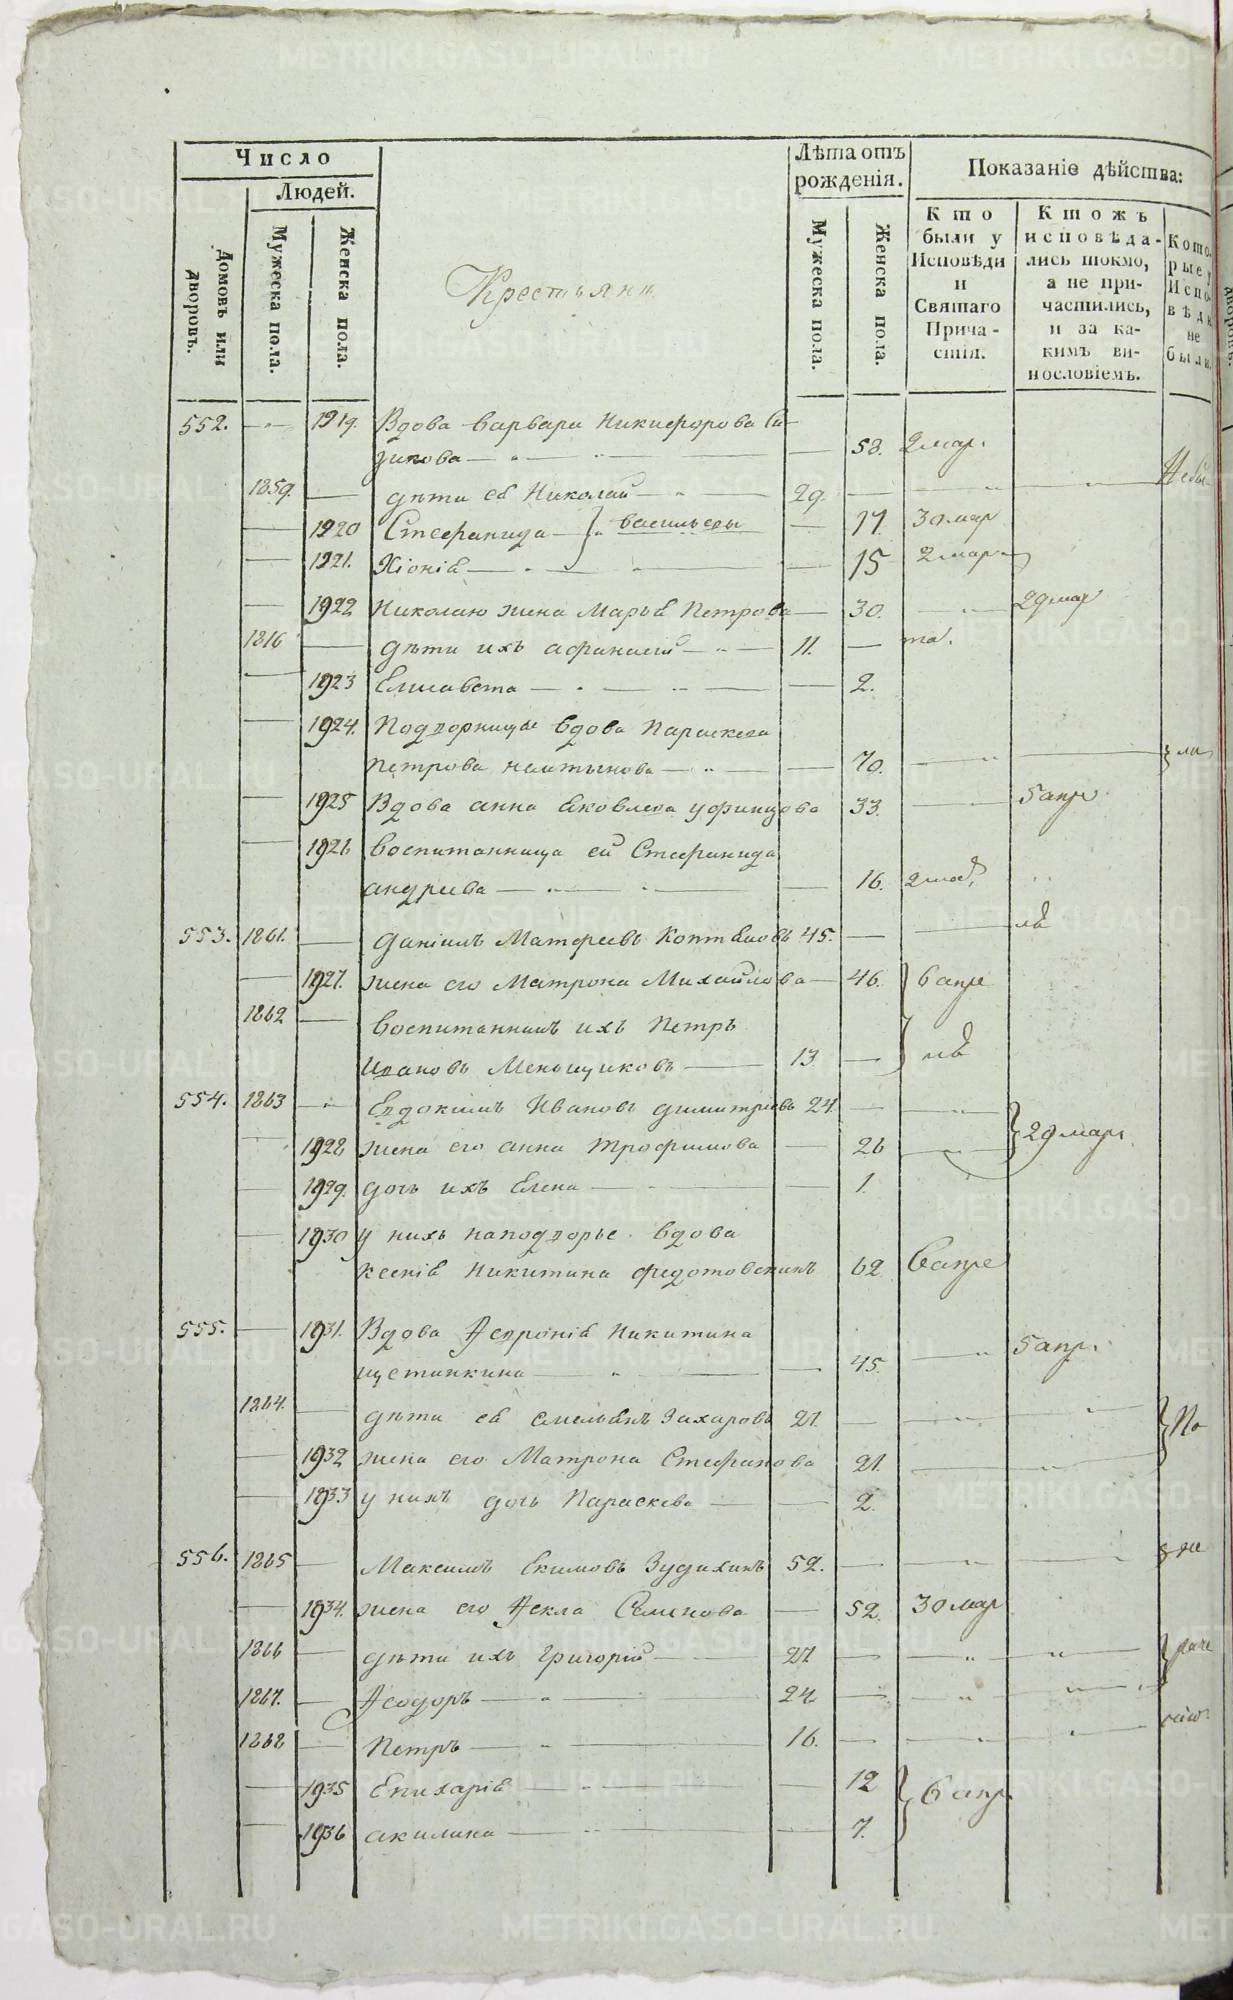 Число
Людей.
Домовъ или дворовъ.
Мужеска пола.
Женска пола.
Крестьяне
Лѣта отъ рожденія.
Мужеска пола.
Женска пола.
Показаніе дѣйства:
Кто были у Исповѣди и Святаго Причастія.
Ктожъ исповѣдались токмо, а не причастились, и за какимъ винословіемъ.
Которые у Исповѣди не были.
552. 1919. Вдова Варвара Никифорова
58. 2 мар.
1859. дѣти ея Николай 29.
1920 Стефанида } васильевы 17. 30 мар
1921. Хіонія 15 2 мар
1922 Николаю жена Марья Петрова 30. 29 мар
11. дѣти ихъ афанасій
1923 Елисавета 2.
1924. Подворницы вдова Параскева
Петрова 70.
1925 Вдова анна Яковлева уфинцова 33. 5 апр.
1926 воспитанница ей Стефанида
андреева 16.
553. 1861. Даніилъ Матфеевъ Коптяковъ 45.
1927. жена его Матрона Михайлова 46. 6 апре
1862 воспитанникъ ихъ Петръ
Ивановъ Меньщиковъ 13
554. 1863 Евдокимъ Ивановъ димитріевъ 24. } 29 мар
1928 жена его анна Трофимова 26
1929. дочь ихъ Елена 1.
1930 у нихъ наподворье вдова
Ксенія Никитина 62 6 апре
555. 1931. Вдова Февронія Никитина
щетинкина 45. 5 апр.
1864. дѣти ея емельянъ Захаровъ 21.
1932 жена его Матрона Стефанова 21.
1933 у нихъ дочь Параскева 2.
556. 1865 Максимъ Екимовъ Зудихинъ 52.
1934. жена его Фекла Семенова 52. 30 мар
1866 дѣти ихъ Григорій 27.
1867. Феодоръ 24
1868 Петръ 16.
1935 Епихарія 12 } 6 апр.
1936 акилина 7.
METRIKI.GASO-URAL.RU